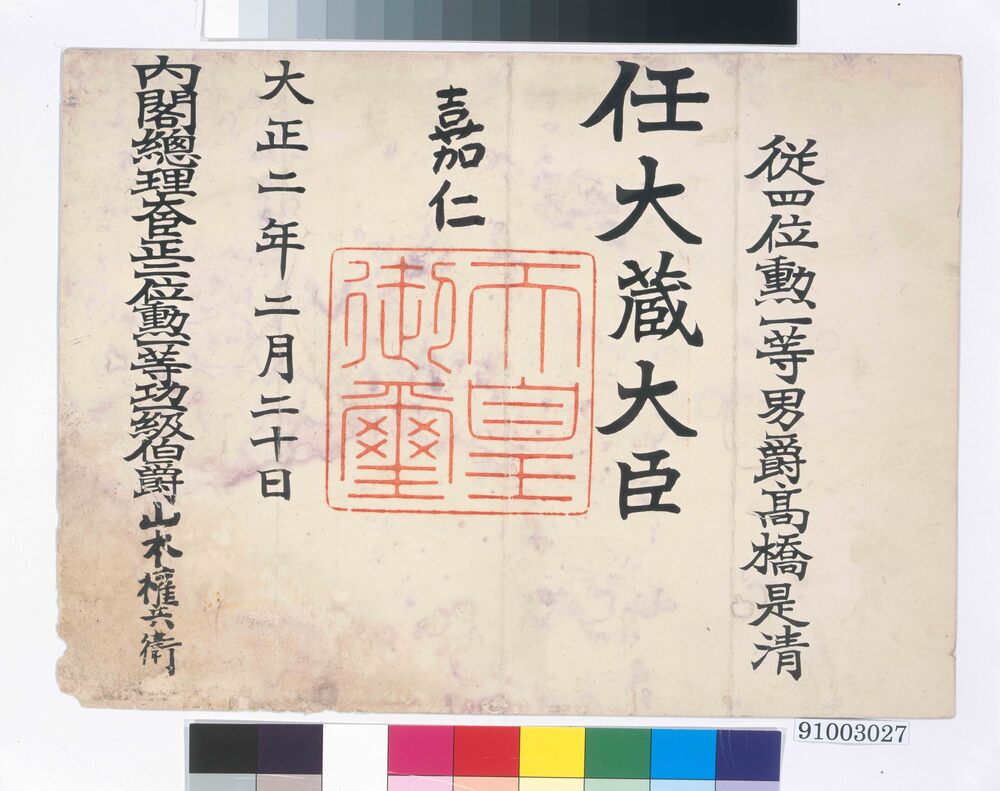 従四位勲一等男爵髙橋是清
任大蔵大臣
嘉仁
天皇御璽
大正二年二月二十日
内閣總理大臣正二位勲一等功一級伯爵山本權兵衛
91003027